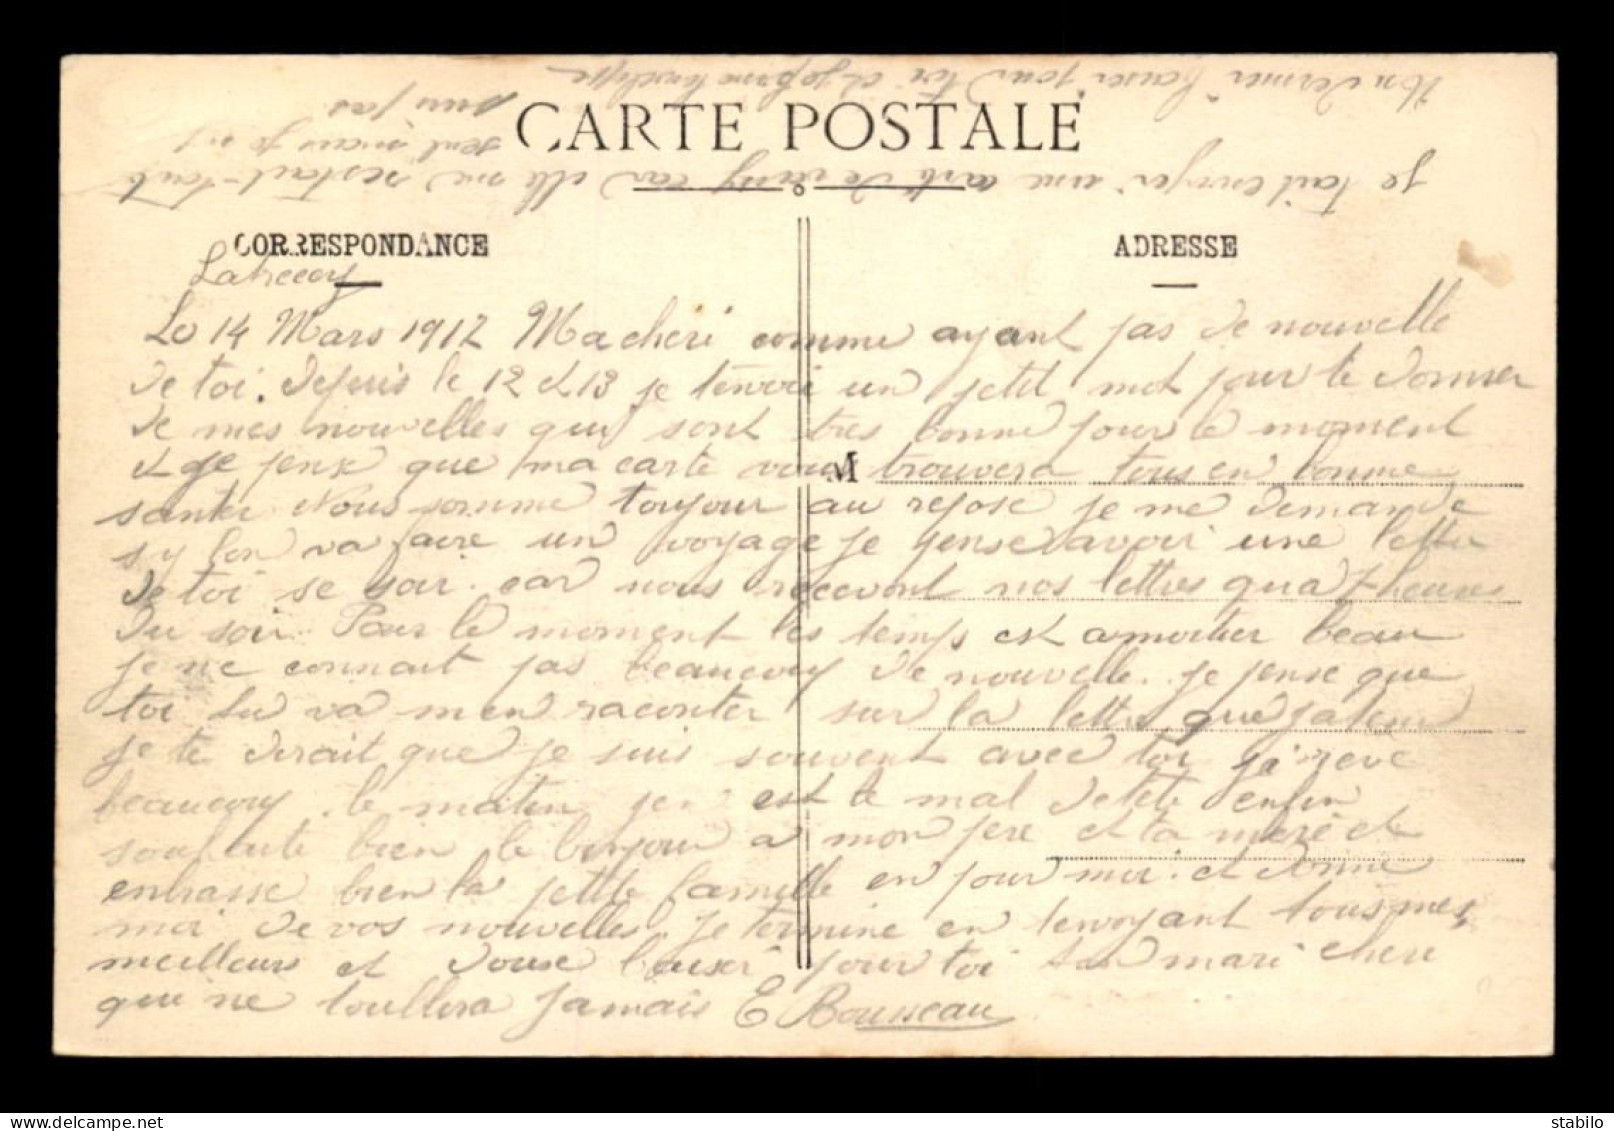 Un dernier baiser pour toi et je ferme l'enveloppe
CARTE POSTALE
je fait envoyer une carte de car elle me restait tout
seul mais je
suis pas
CORRESPONDANCE
ADRESSE
Lahecourt
Le 14 Mars 1917 Ma cheri comme ayant pas de nouvelle
de toi. depuis le 12 et 13 je tenvoi un petit mot pour te donner
de mes nouvelles qui sont tres bonne pour le moment
et je pense que ma carte vous trouvera tous en bonne
M
santer Nous somme toujour au repose je me demande
sy lon va faire un voyage je pense avoir une lettre
de toi se soir. car nous recevont nos lettres qua 7 heures
Du soir. Pour le moment les temps est beau
je ne connait pas beaucoup de nouvelle. je pense que
toi tu va men raconter sur la lettre que
je te dirait que je suis souvent avec toi je reve
beaucoup. le matin jen est le mal de tete enfin
souhaite bien le bonjour a mon pere et ta mere et
enbrasse bien la petite famille en pour moi. et donne
moi de vos nouvelles. Je termine en tenvoyant tous mes
meilleurs et douse baiser pour toi ton mari cheri
qui ne toublira jamais E Bousseau
delcampe.net